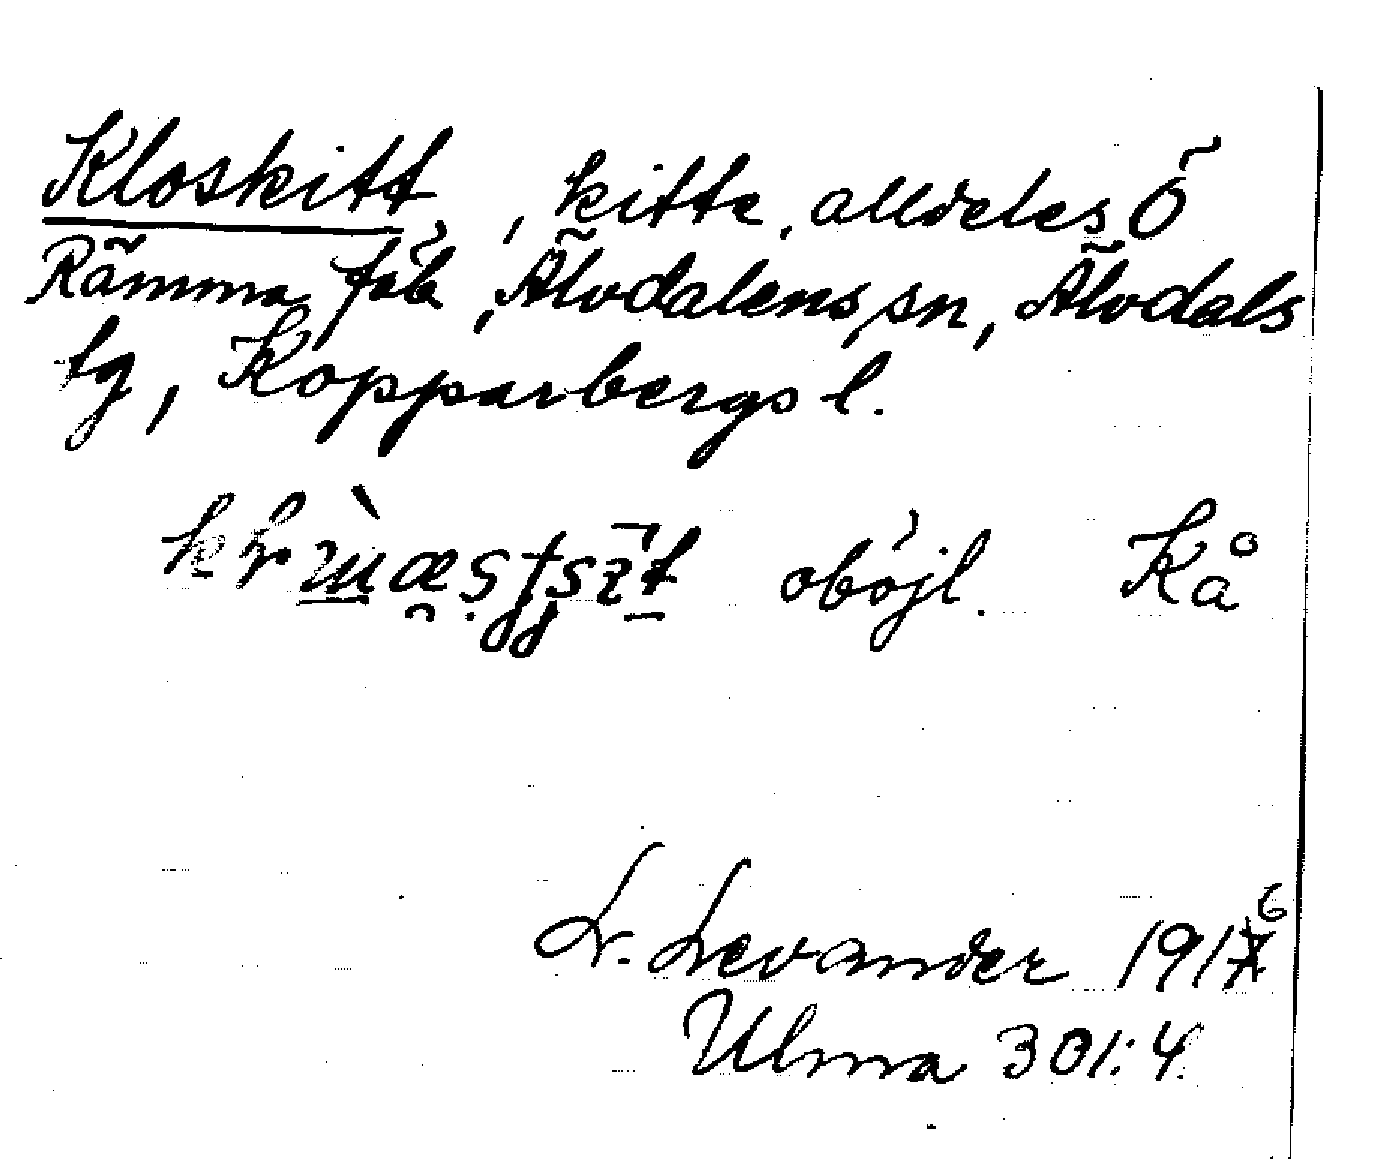 Kloskitt, kitte, alldeles Ö
Rämma fäb, Älvdalens sn, Älvdals
tg, Kopparbergs l.
oböjl. Kå
L. Levander 1916
Ulma 301:4